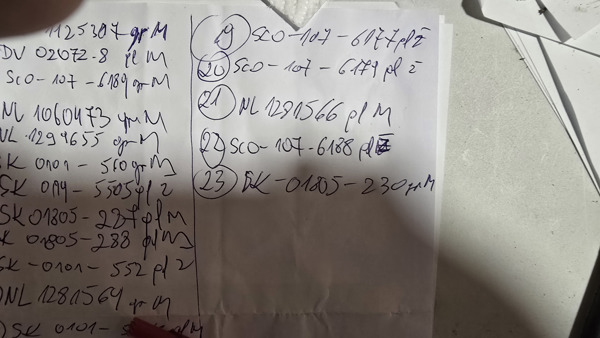 1125307 gr M
DV 02072-8 pl M
SCO-107-6189 gr M
NL 1060473 gr M
NL 1294655 gr M
SK 0101-560 gr M
SK 0114-5505 pl ž
SK 01805-237 pl M
SK 01805-288 pl M
SK-0101-552 pl ž
NL 1281564 gr M
SK 0101- pl M
19 SCO-107-6177 pl ž
20 SCO-107-6179 pl ž
21 NL 1281566 pl M
22 SCO-107-6188 pl ž
23 SK-01805-230 gr M